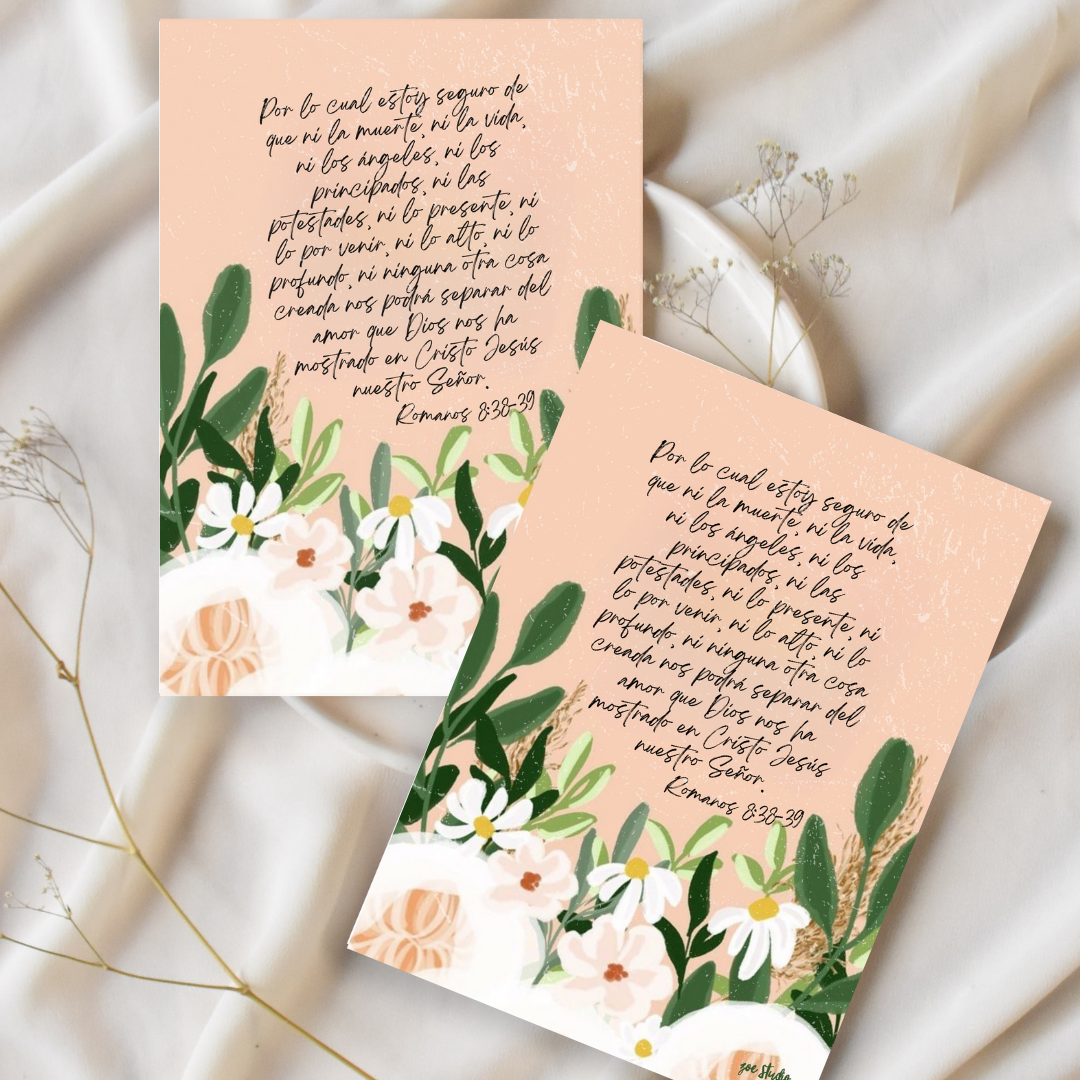 Por lo cual estoy seguro de
que ni la muerte, ni la vida,
ni los ángeles, ni los
principados, ni las
potestades, ni lo presente, ni
lo por venir, ni lo alto, ni lo
profundo, ni ninguna otra cosa
creada nos podrá separar del
amor que Dios nos ha
mostrado en Cristo Jesús
nuestro Señor.
Romanos 8:38-39
Por lo cual estoy seguro de
que ni la muerte, ni la vida,
ni los ángeles, ni los
principados, ni las
potestades, ni lo presente, ni
lo por venir, ni lo alto, ni lo
profundo, ni ninguna otra cosa
creada nos podrá separar del
amor que Dios nos ha
mostrado en Cristo Jesús
nuestro Señor.
Romanos 8:38-39
zoe studio